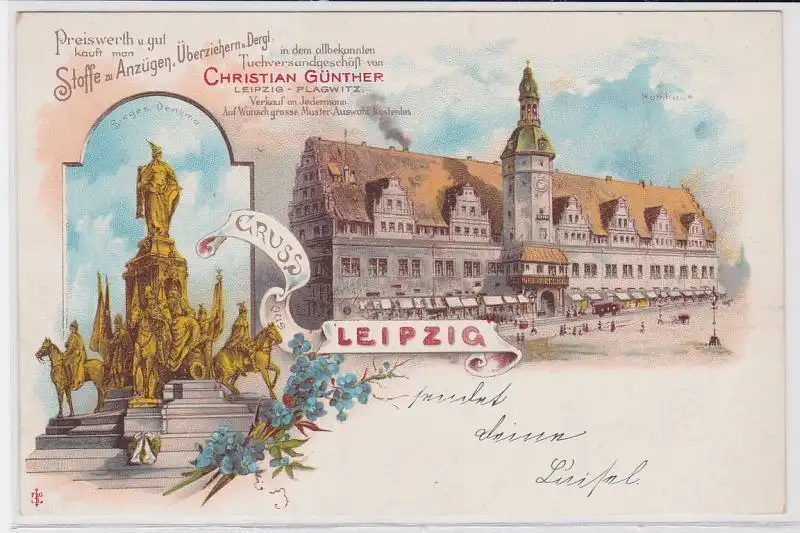 Preiswerth u. gut
kauft man
Stoffe zu Anzügen, Überziehern u. Dergl.
in dem allbekannten
Tuchversandgeschäft von
CHRISTIAN GÜNTHER
LEIPZIG - PLAGWITZ.
Verkauf an Jedermann
Auf Wunsch grosse Muster-Auswahl kostenlos.
Sieges Denkmal
Rathhaus
GRUSS
aus
LEIPZIG
sendet
Deine
Luisel.